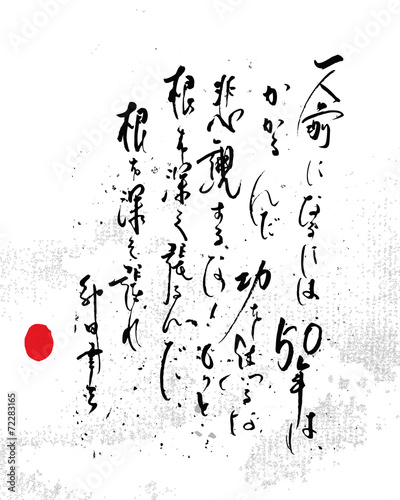 一人前になるには、50年は、
かかるんだ 功を焦るな
悲観するな！もっと
根を深く張るんだ。
根を深く張れ
升田幸三
Adobe Stock | #72283165